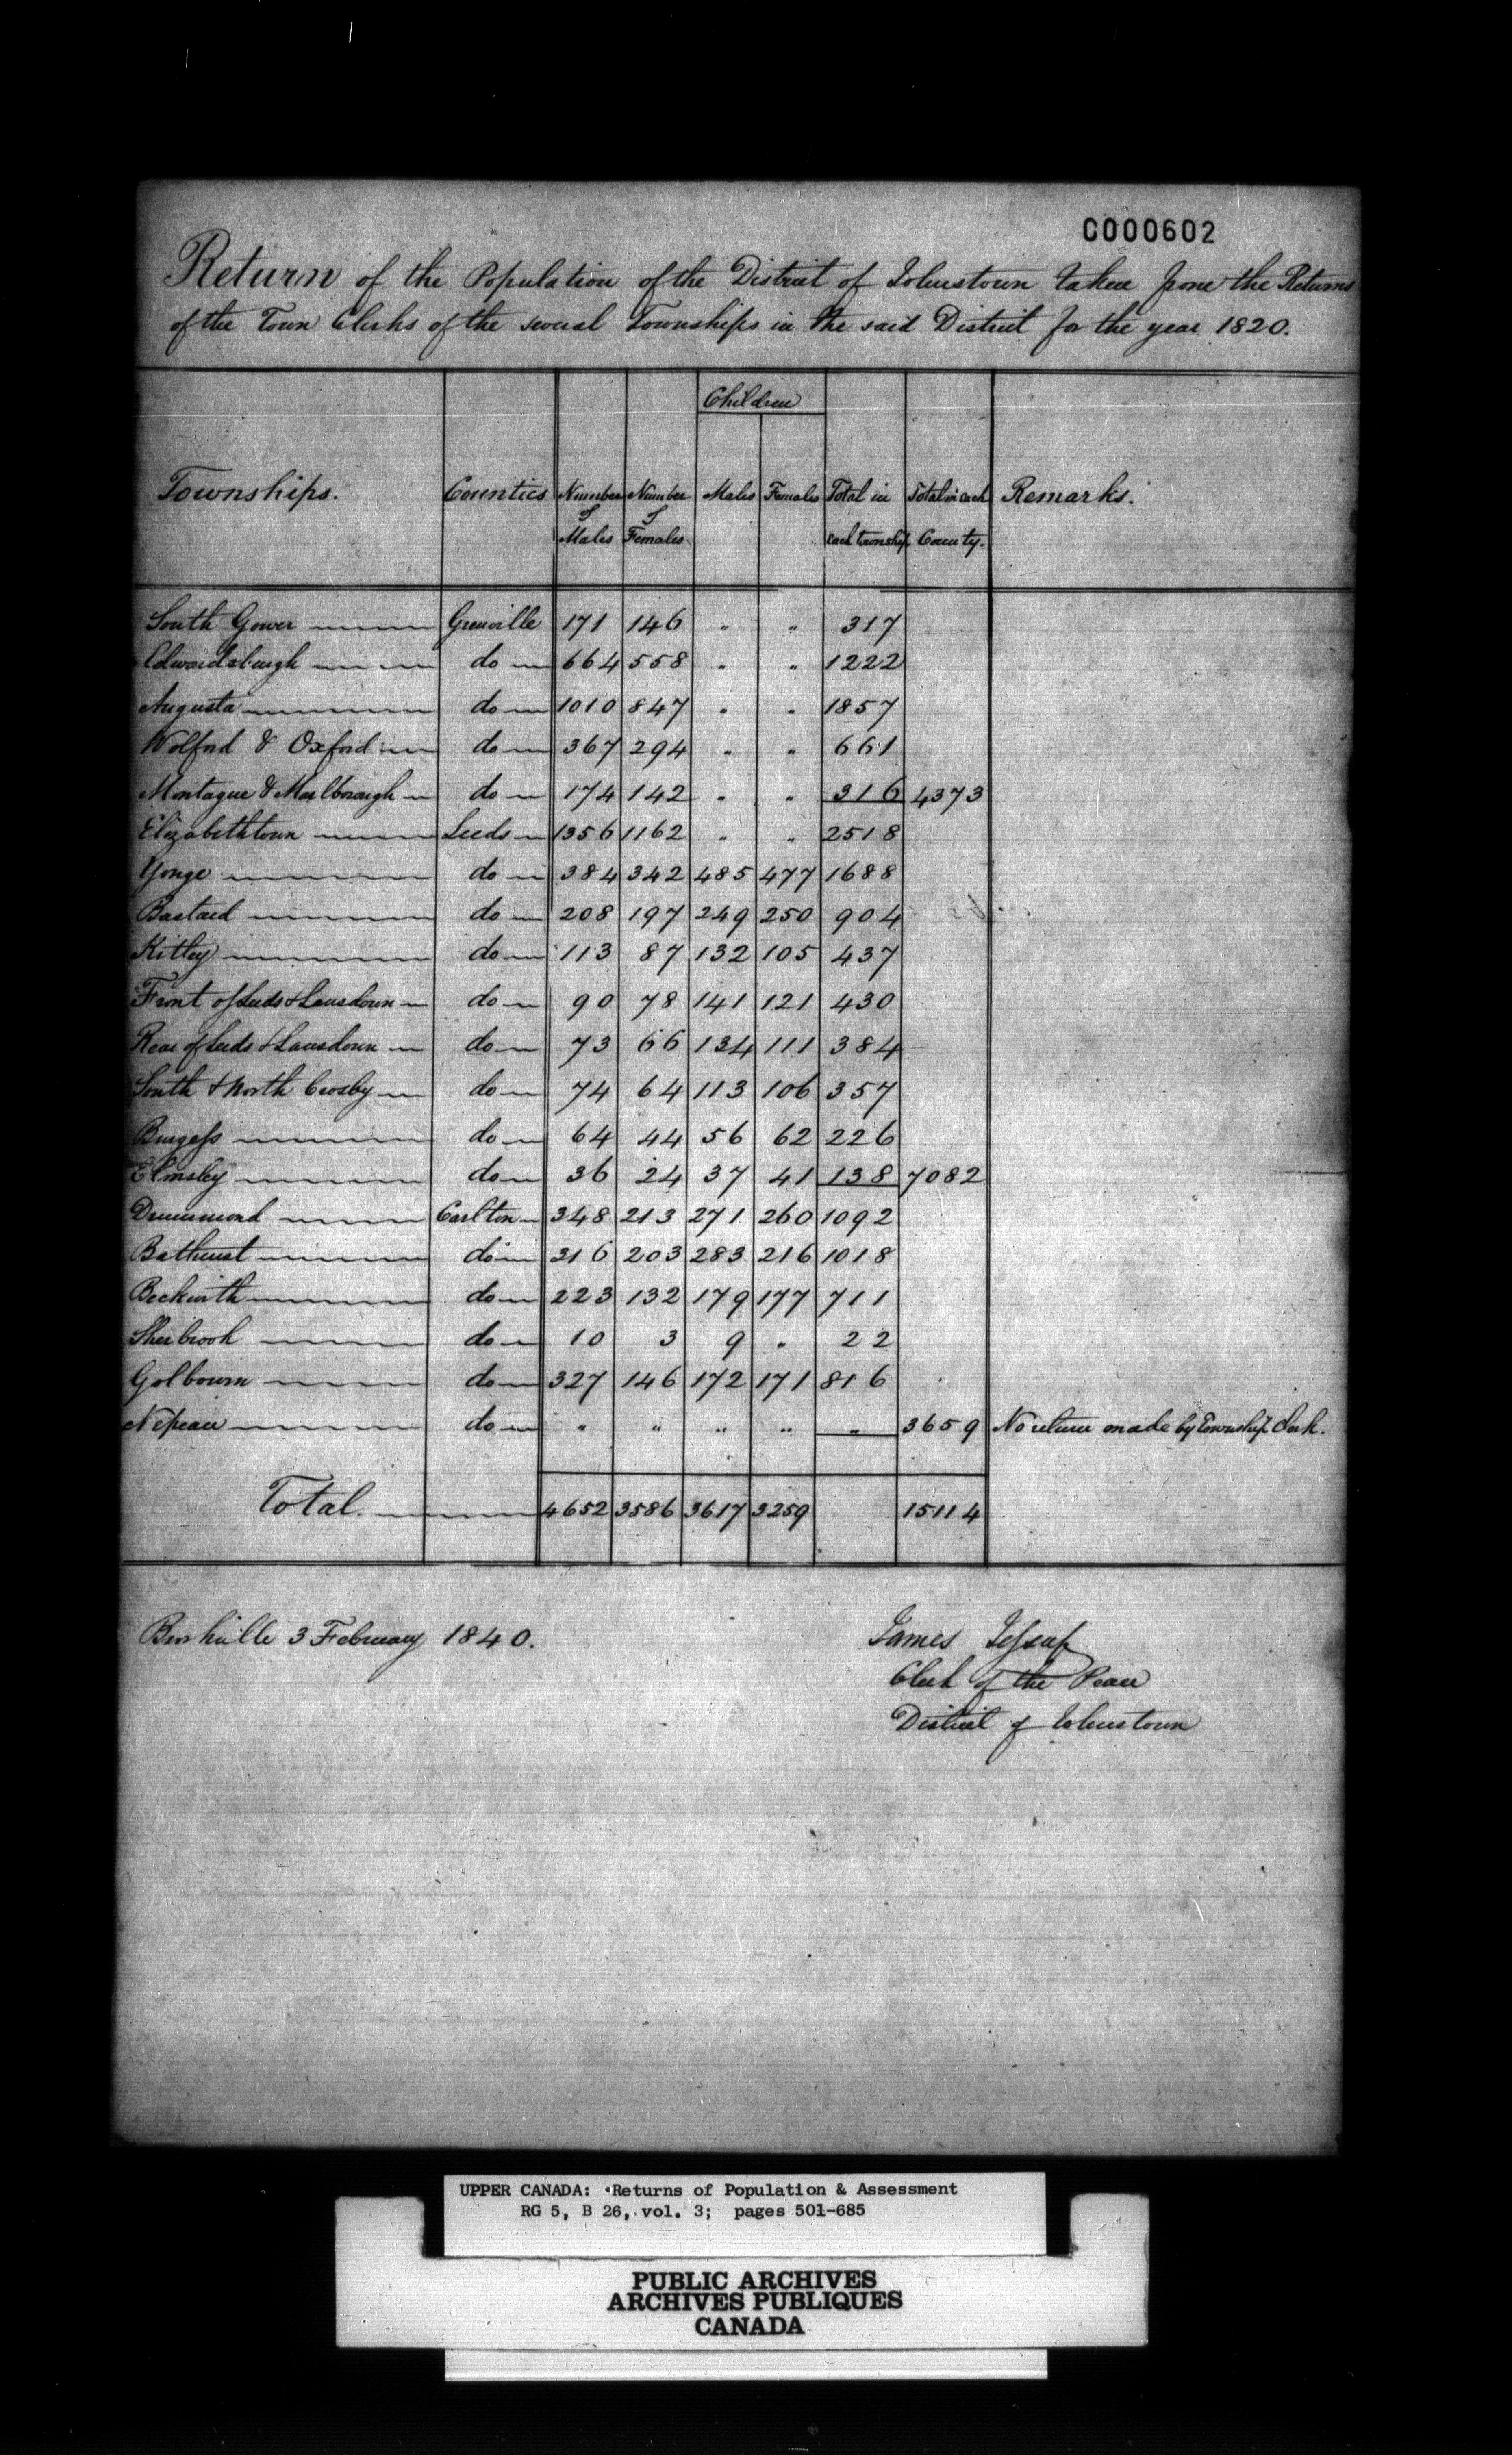 C000602
Return of the Population of the District of Johnstown taken from the Returns
of the Town Clerks of the several Townships in the said District for the year 1820.
Children
Townships. Counties Number of Males Number of Females Males Females Total in each township Total in each County. Remarks.
South Gower Grenville 171 146 " " 317
Edwardsburgh do 664 558 " " 1222
Augusta do 1010 847 " " 1857
Wolford & Oxford do 367 294 " " 661
Montague & Marlborough do 174 142 " " 316 4373
Elizabethtown Leeds 1356 1162 " " 2518
Yonge do 384 342 485 477 1688
Bastard do 208 197 249 250 904
Kitley do 113 87 132 105 437
Front of Leeds & Lansdown do 90 78 141 121 430
Rear of Leeds & Lansdown do 73 66 134 111 384
South & North Crosby do 74 64 113 106 357
Burgess do 64 44 56 62 226
Elmsley do 36 24 37 41 138 7082
Drummond Carlton 348 213 271 260 1092
Bathurst do 316 203 283 216 1018
Beckwith do 223 132 179 177 711
Sherbrook do 10 3 9 " 22
Golbourn do 327 146 172 171 816
Nepean do " " " " " 3659 No return made by Township Clerk.
Total 4652 3586 3617 3259 15114
Brockville 3 February 1840.
James Jessup
Clerk of the Peace
District of Johnstown
UPPER CANADA: Returns of Population & Assessment
RG 5, B 26, vol. 3; pages 501-685
PUBLIC ARCHIVES
ARCHIVES PUBLIQUES
CANADA